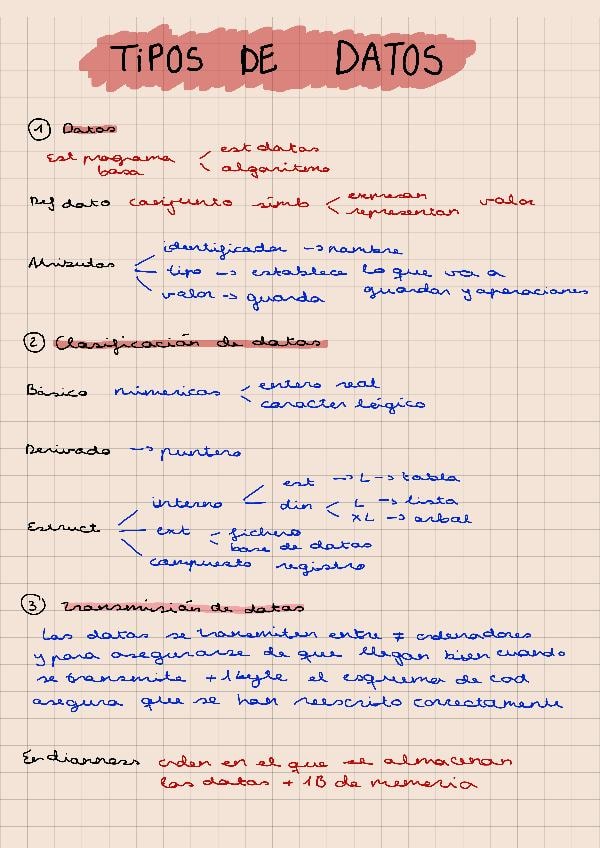 TIPOS DE DATOS
1 Datos
Est programa basa < est datos
algoritmo
Def dato conjunto simb < expresan valor
representan
Atributos < identificador → nombre
tipo → establece lo que va a guardar y operaciones
valor → guarda
2 Clasificación de datos
Básico númericos < entero real
caracter lógico
Derivado → puntero
Estruct < interno < est → L → tabla
din < L → lista
XL → arbol
ext < fichero
base de datos
compuesto registro
3 Transmisión de datos
Los datos se transmiten entre ≠ ordenadores
y para asegurarse de que llegan bien cuando
se transmite +1 byte el esquema de cod
asegura que se han reescrito correctamente
Endianness orden en el que se almacenan
los datos +1B de memoria